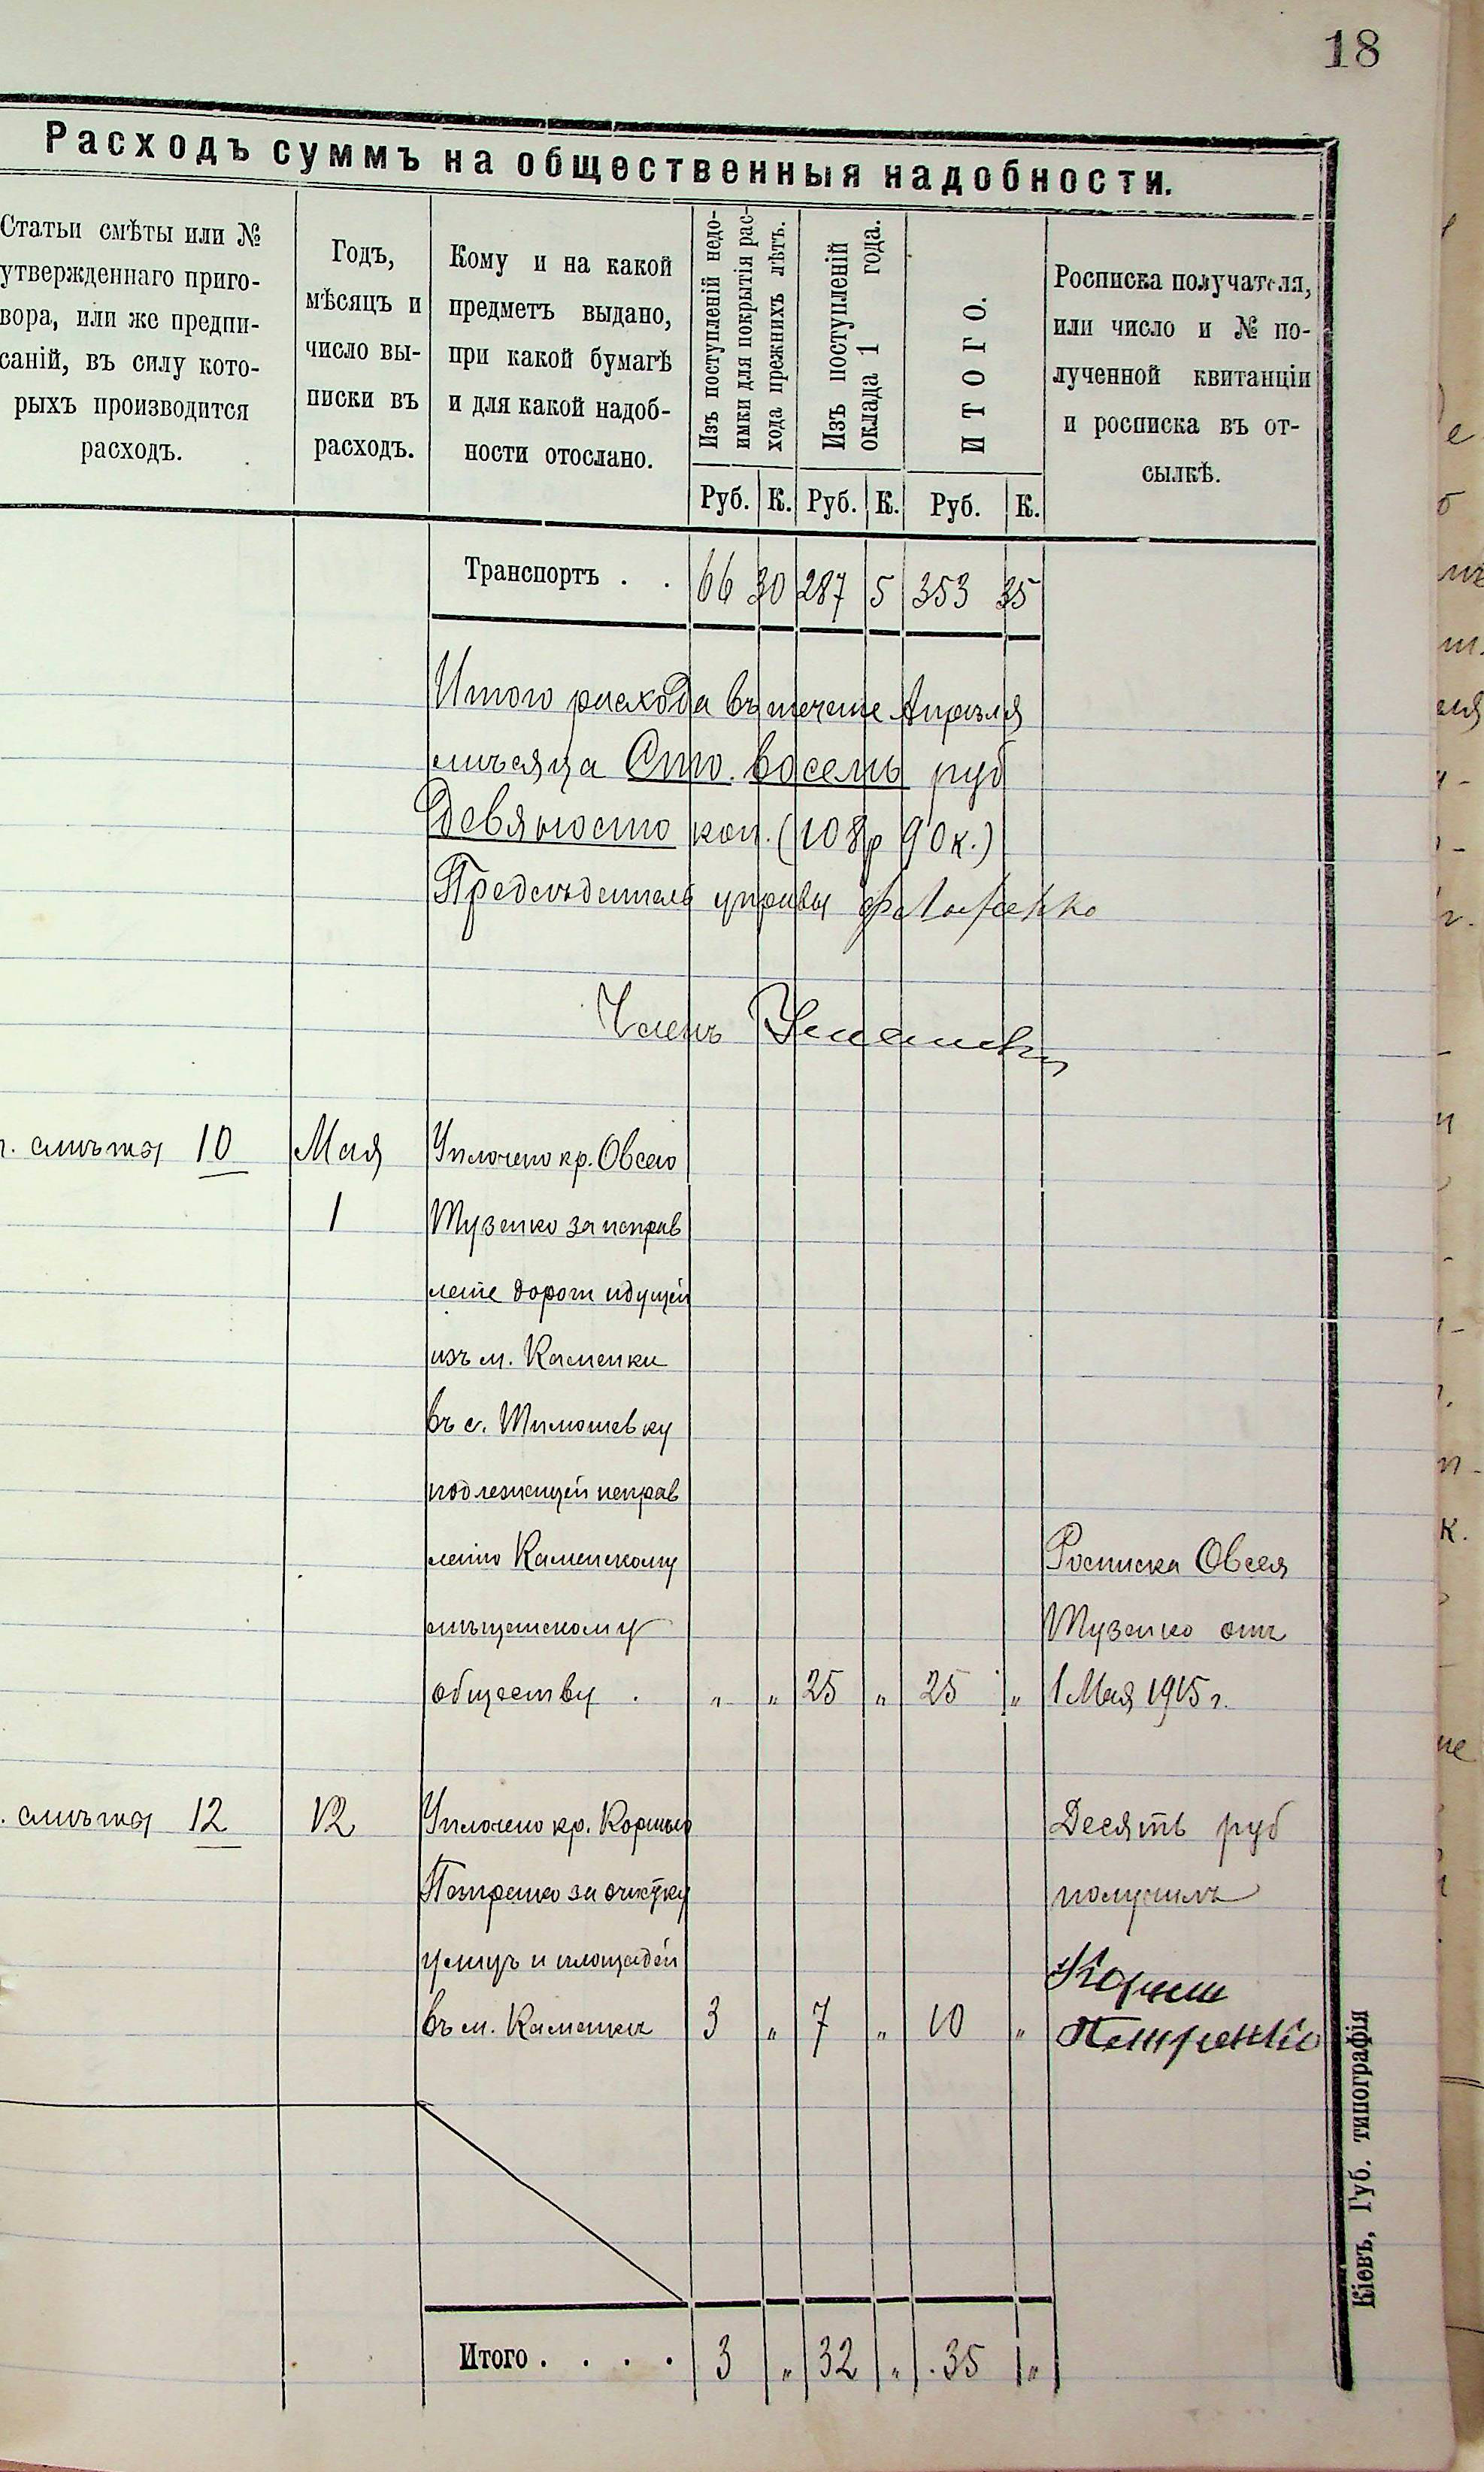 18
Расходъ суммъ на общественныя надобности.
Статьи смѣты или №
утвержденнаго приго-
вора, или же предпи-
саній, въ силу кото-
рыхъ производится
расходъ.
Годъ,
мѣсяцъ и
число вы-
писки въ
расходъ.
Кому и на какой
предметъ выдано,
при какой бумагѣ
и для какой надоб-
ности отослано.
Изъ поступленій недо-
имки для покрытія рас-
хода прежнихъ лѣтъ.
Изъ поступленій
оклада 1 года.
ИТОГО.
Росписка получателя,
или число и № по-
лученной квитанціи
и росписка въ от-
сылкѣ.
Руб. К. Руб. К. Руб. К.
Транспортъ . . 66 30 287 5 353 35
Итого расхода въ теченіе Апрѣля
мѣсяца Сто восемь руб
Девяносто коп. (108 р 90 к.)
Предсѣдатель управы
Членъ
смѣты 10 Мая Уплочено кр. Овсею
1 Тузенко за исправ
леніе дороги идущей
изъ м. Каменки
въ с. Тимошевку
подлежащей исправ
ленію Каменскому Росписка Овсея
мѣщанскому Тузенко отъ
обществу . „ „ 25 „ 25 „ 1 Мая 1915 г.
смѣты 12 12 Уплочено кр. Корнѣю Десять руб
Петренко за очистку получилъ
улицъ и площадей Корней
въ м. Каменки 3 „ 7 „ 10 „ Петренко
Итого . . . . 3 „ 32 „ 35 „
Кіевъ, Губ. типографія